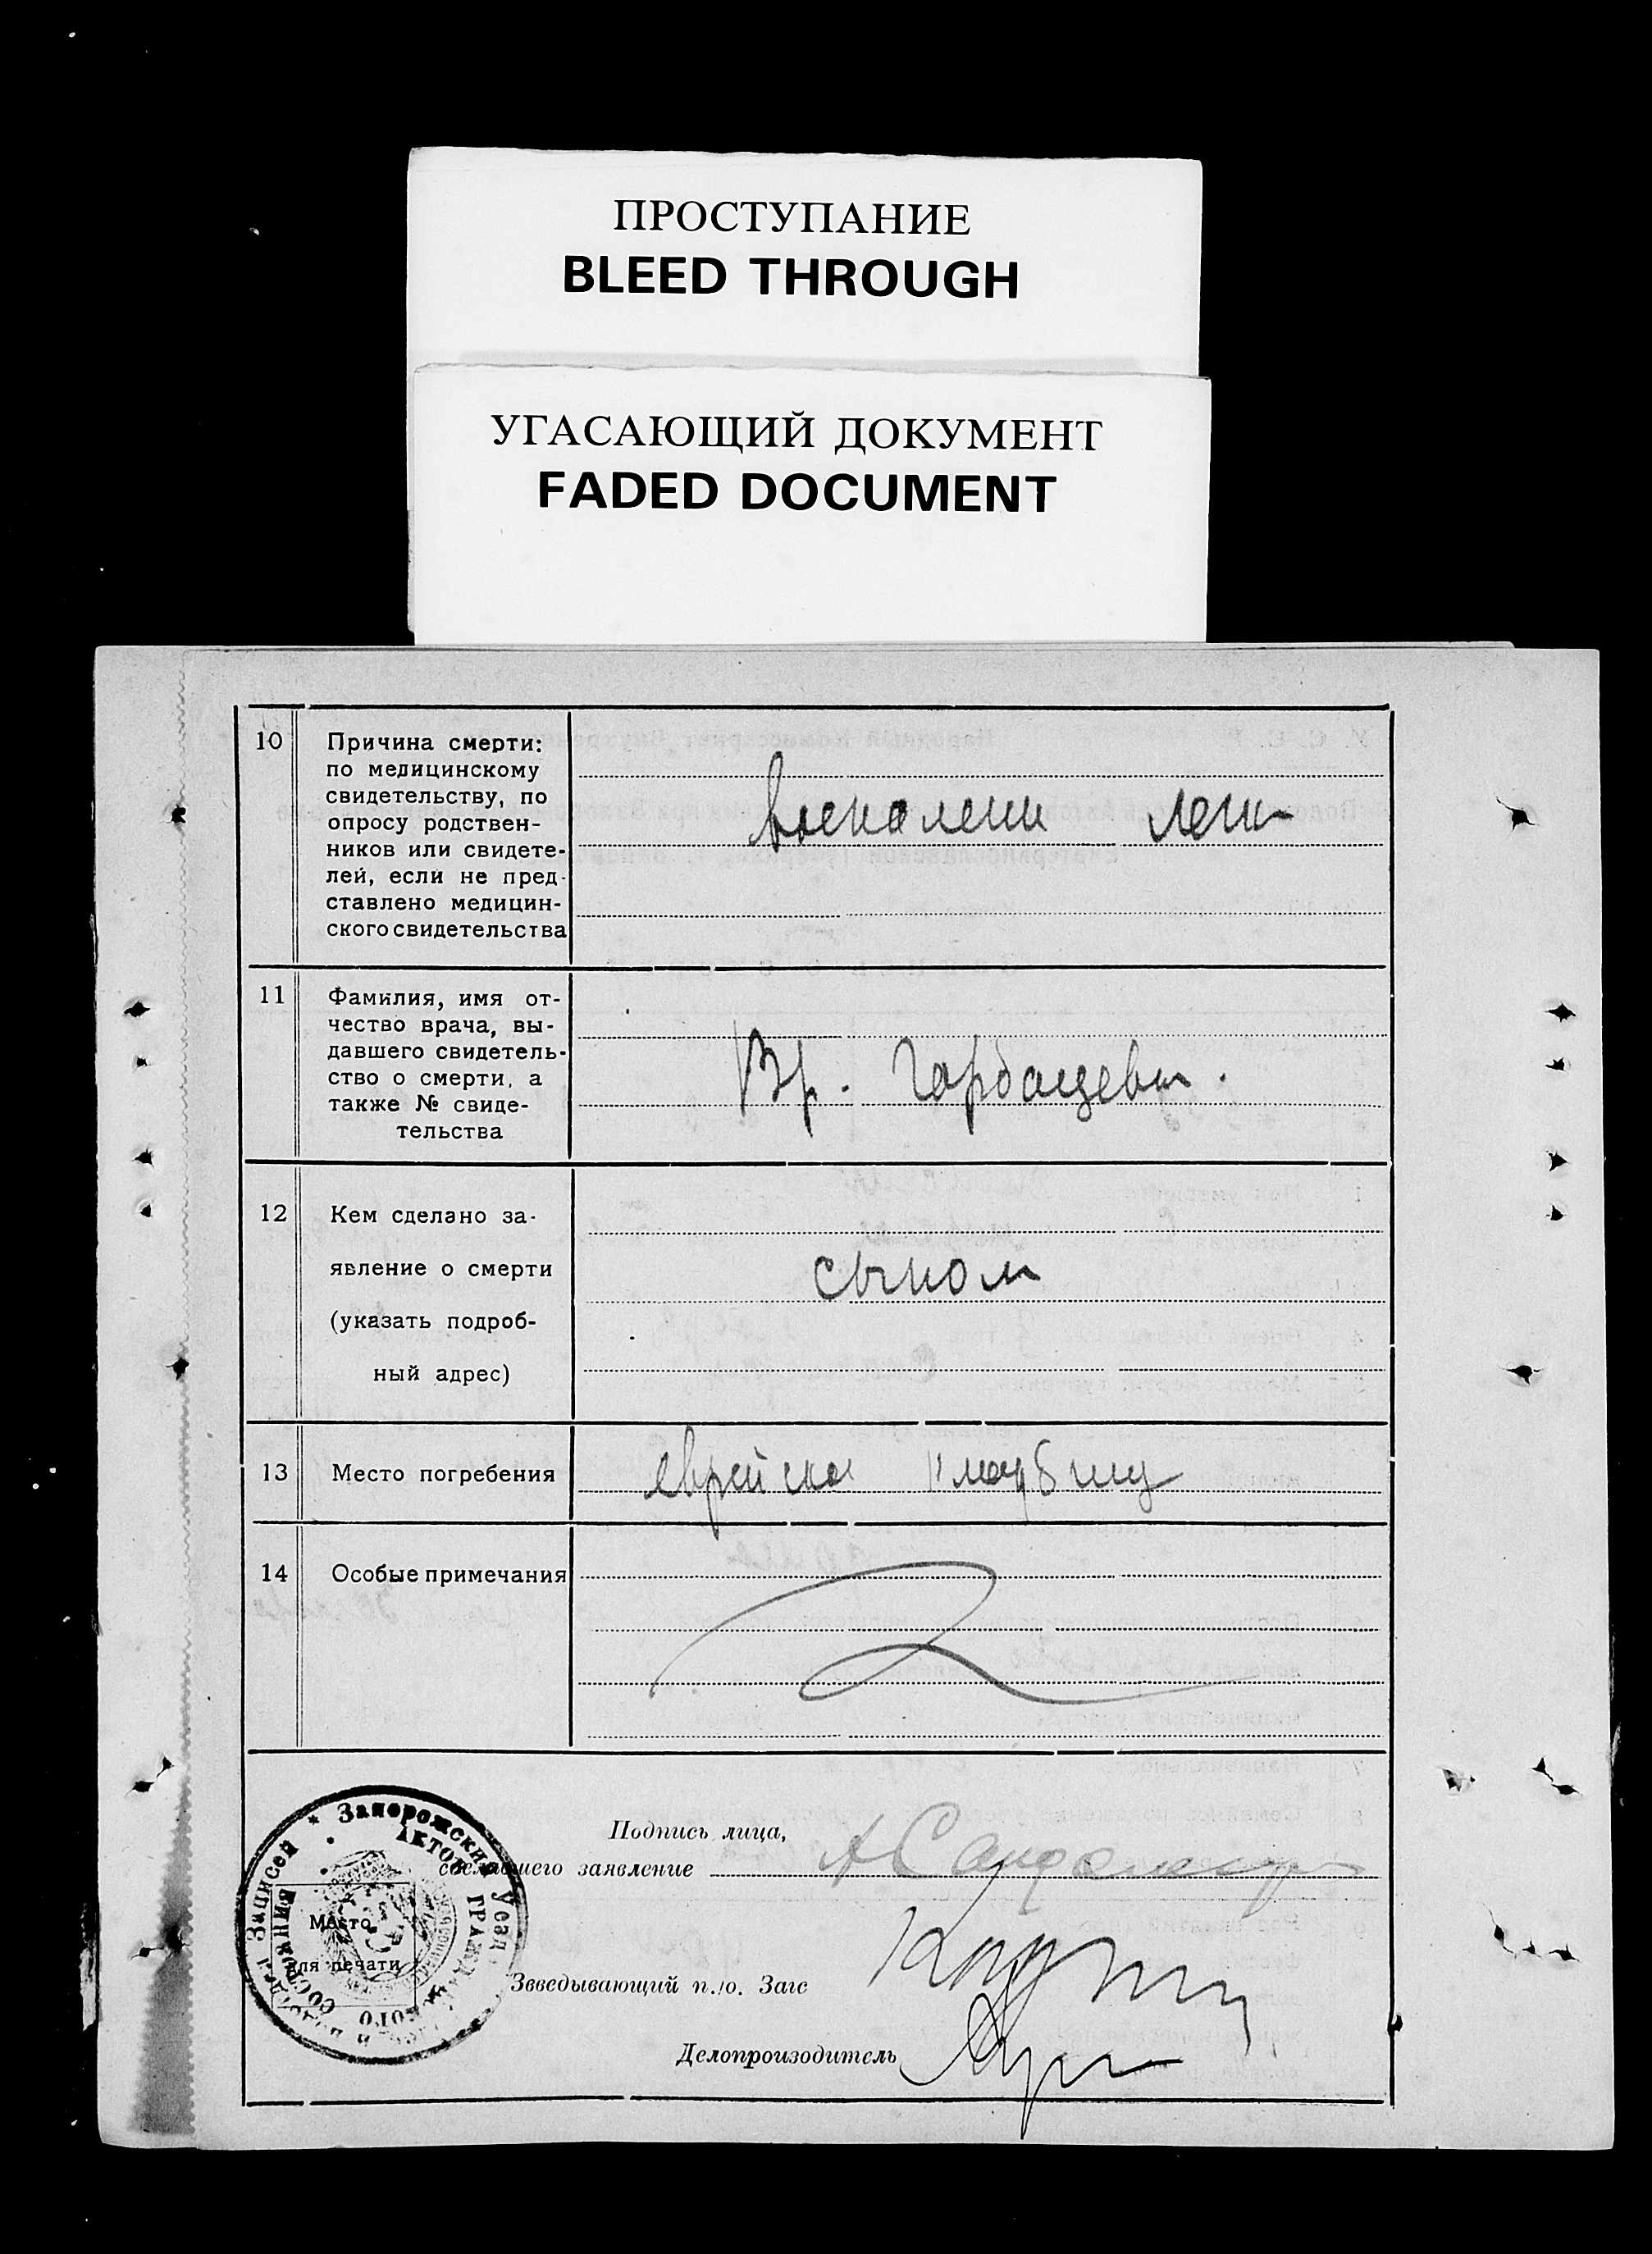 ПРОСТУПАНИЕ
BLEED THROUGH
УГАСАЮЩИЙ ДОКУМЕНТ
FADED DOCUMENT
10 Причина смерти:
по медицинскому
свидетельству, по
опросу родствен-
ников или свидете-
лей, если не пред-
ставлено медицин-
ского свидетельства
воспалени легк
11 Фамилия, имя от-
чество врача, вы-
давшего свидетель-
ство о смерти, а
также № свиде-
тельства
Вр. Горбацевич.
12 Кем сделано за-
явление о смерти
(указать подроб-
ный адрес)
сыном
13 Место погребения еврейско кладбищ
14 Особые примечания
Подпись лица,
сделавшего заявление
Место
для печати
Заведывающий п./о. Загс
Делопроизводитель